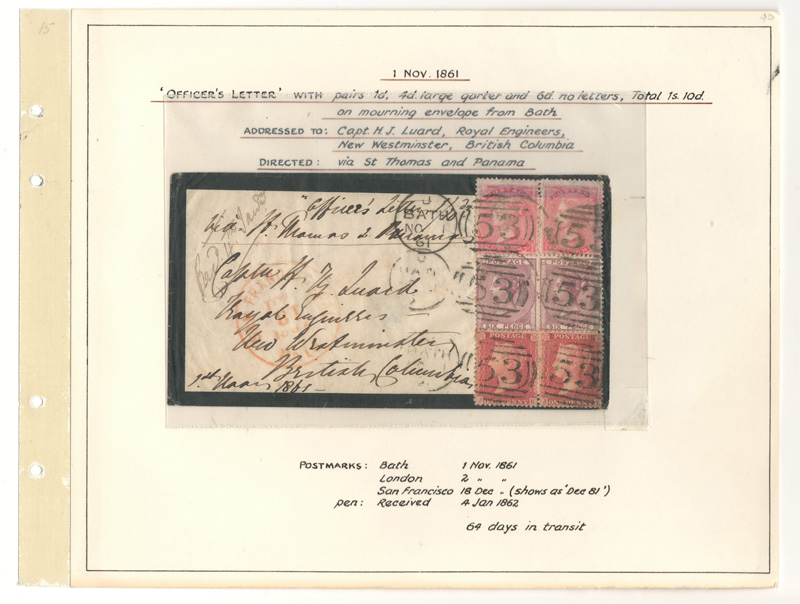 15
40
1 Nov. 1861
'Officer's Letter' with pairs 1d, 4d. large garter and 6d. no letters, Total 1s. 10d.
on mourning envelope from Bath
Addressed to: Capt. H. J. Luard, Royal Engineers,
New Westminster, British Columbia
Directed: via St Thomas and Panama
"Officer's Letter"
via St. Thomas & Panama
BATH
NO 1
61
Captn H. J. Luard
Royal Engineers
New Westminster
British Columbia
1st Novr 1861
53 53
POSTAGE POSTAGE
53 53
SIX PENCE SIX
53 53
Postmarks: Bath 1 Nov. 1861
London 2 " "
San Francisco 18 Dec " (shows as 'Dec 81')
pen: Received 4 Jan 1862
64 days in transit